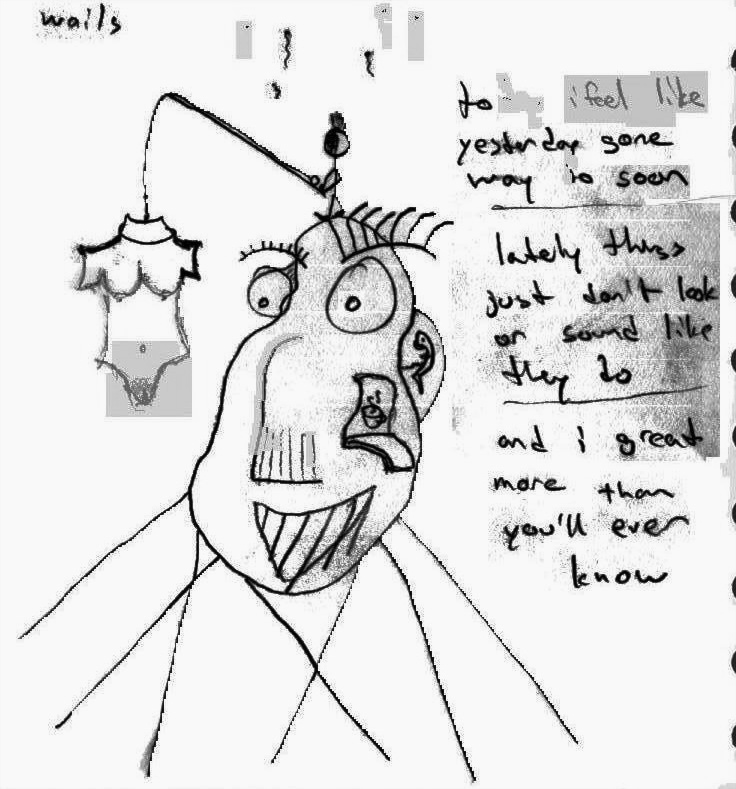 wails
to i feel like
yesterday gone
way to soon
lately things
just don't look
or sound like
they do
and i great
more than
you'll ever
know